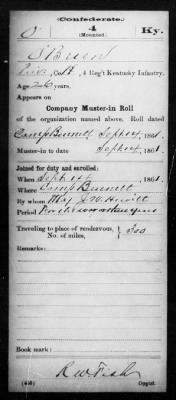 Confederate
O 4 Ky.
(Mounted)
O'Brien
Co. H, 4 Reg't Kentucky Infantry.
Age 26 years.
Appears on
Company Muster-in Roll
of the organization named above. Roll dated
Camp Burnett Sept 14, 1861.
Muster-in to date Sept 14, 1861
Joined for duty and enrolled:
When Sept 14, 1861.
Where Camp Burnett
By whom Maj J. W. Hewitt
Period
Traveling to place of rendezvous, No. of miles, 200
Remarks:
Book mark:
R W Fish
Copyist.